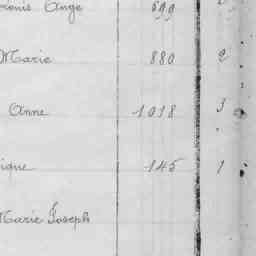 Louis Ange 699
Marie 880 2
Anne 1018 3
ique 145 1
Marie Joseph